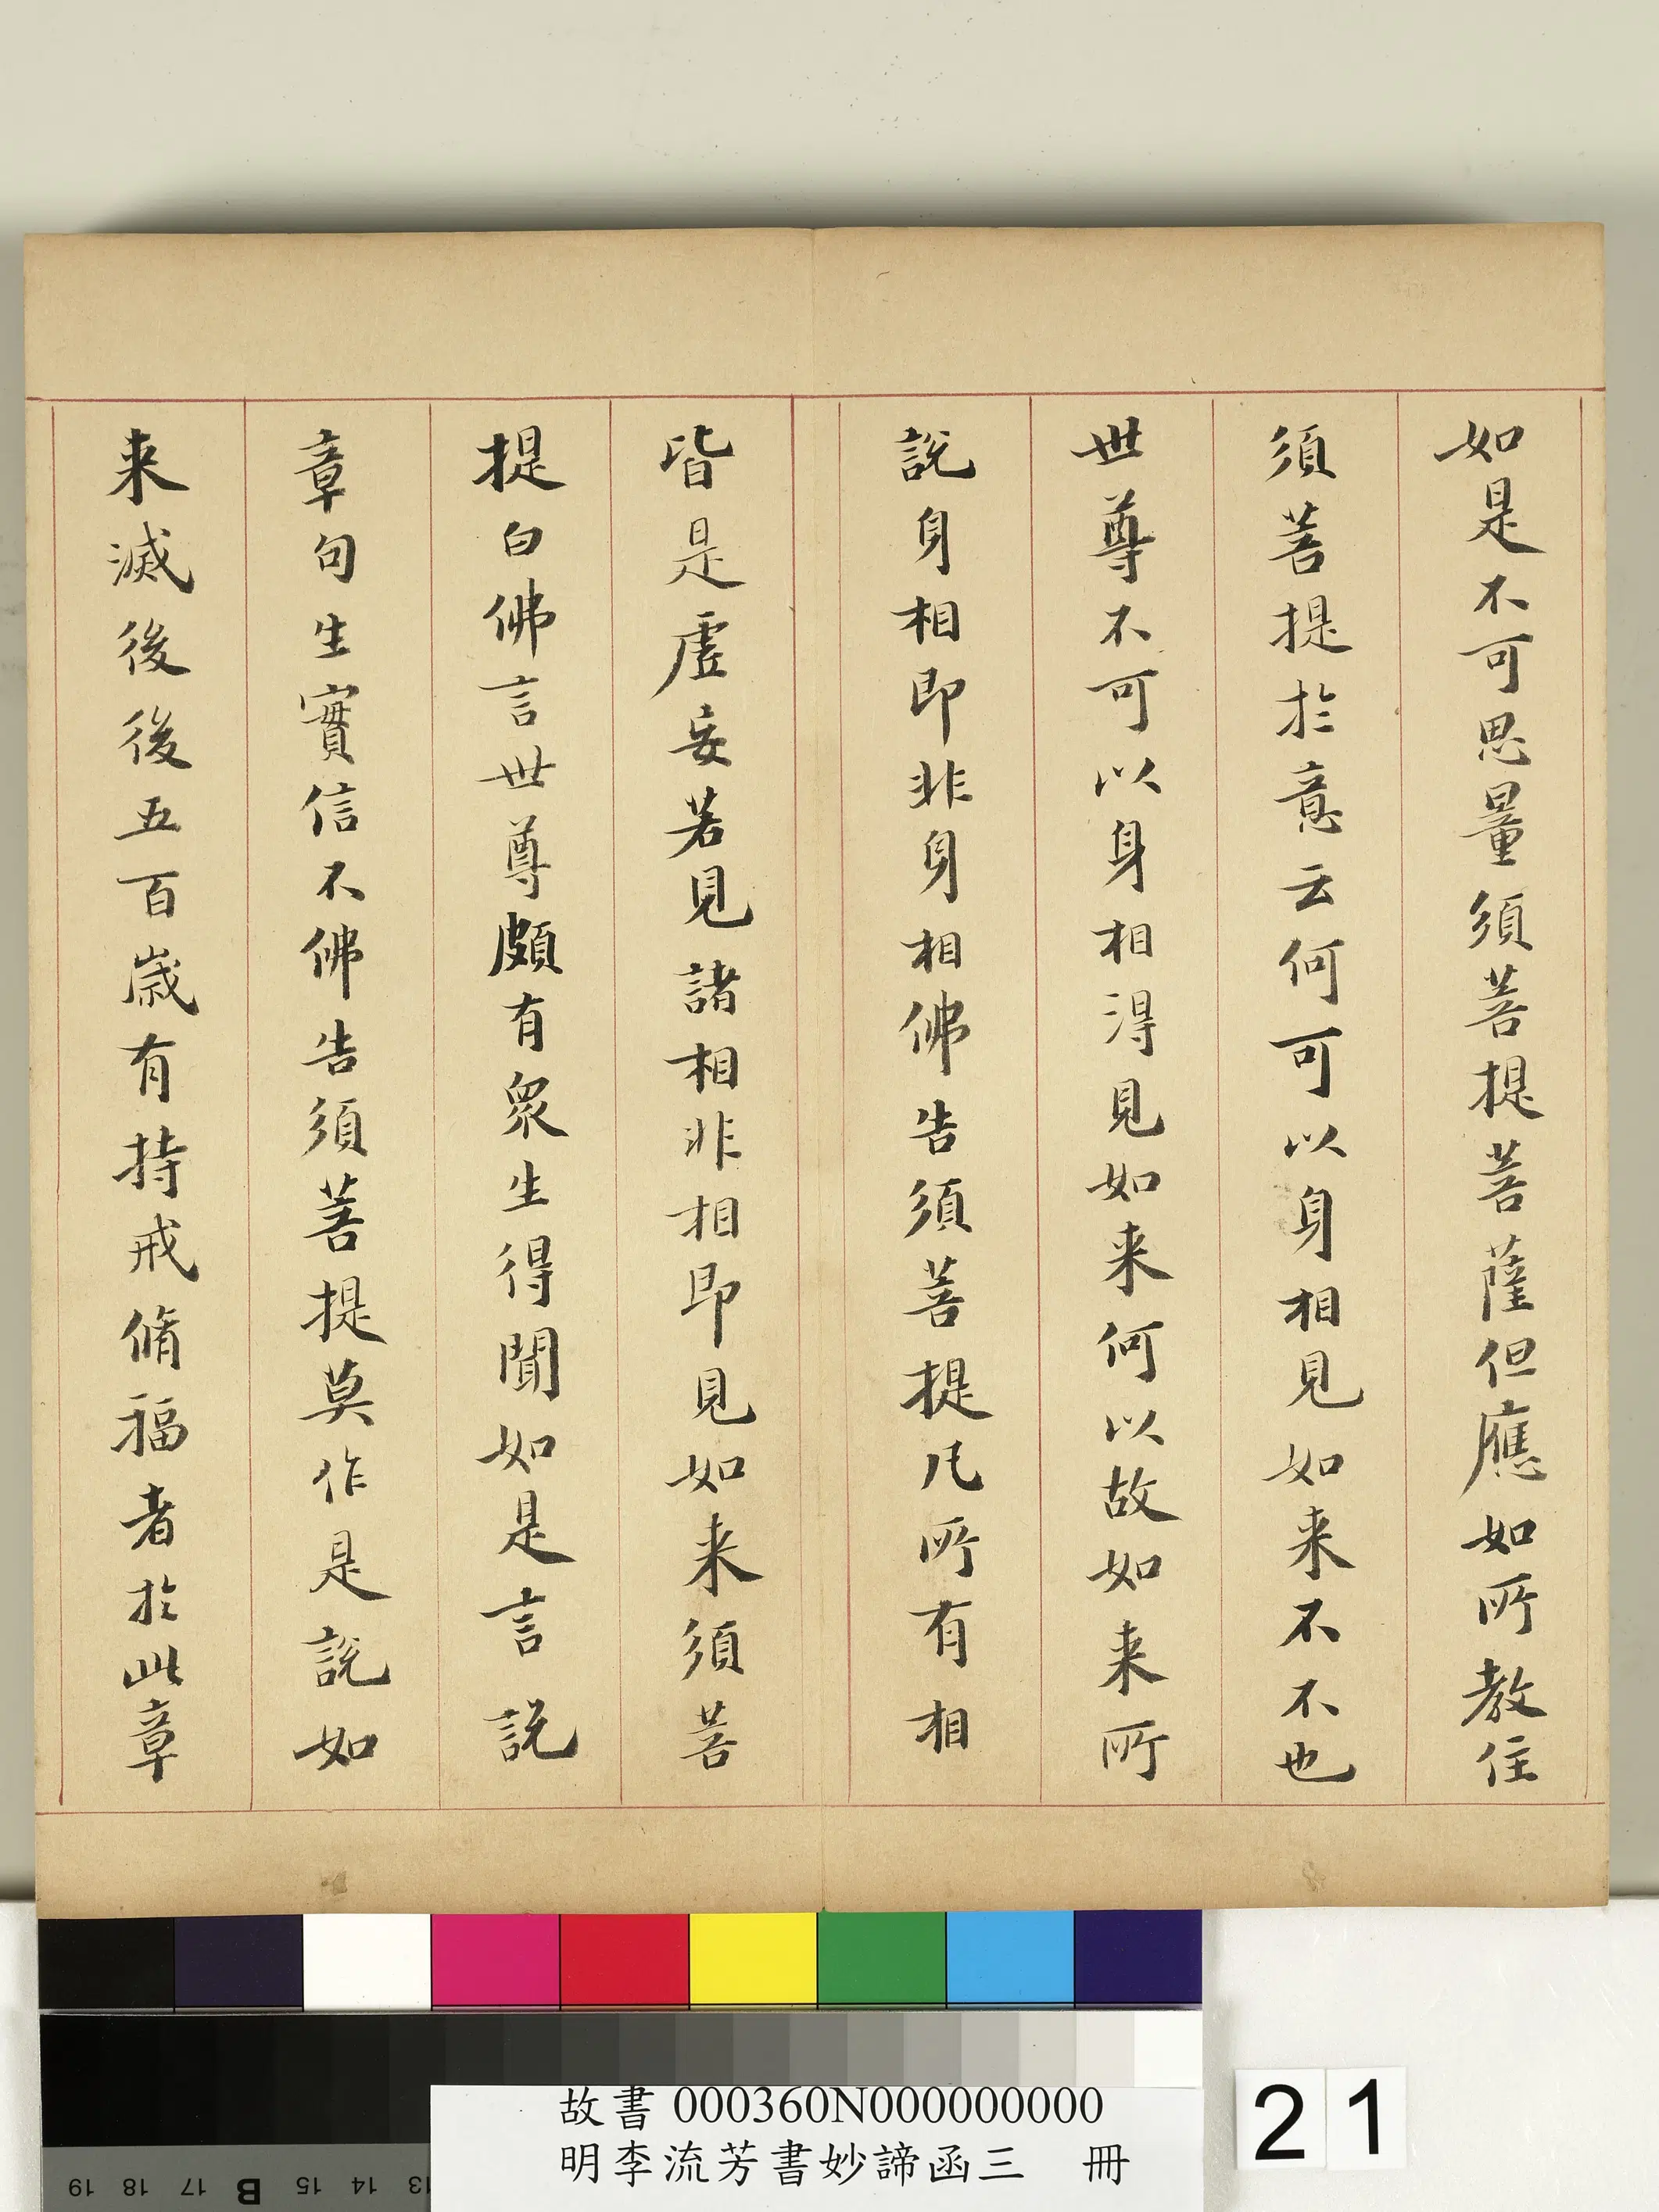 如是不可思量須菩提菩薩但應如所教住
須菩提於意云何可以身相見如来不不也
世尊不可以身相得見如来何以故如来所
說身相即非身相佛告須菩提凡所有相
皆是虛妄若見諸相非相即見如来須菩
提白佛言世尊頗有眾生得聞如是言說
章句生實信不佛告須菩提莫作是說如
来滅後後五百歳有持戒脩福者於此章
故書 000360N000000000
明李流芳書妙諦函三 冊
21
19 18 17 B 15 14 13